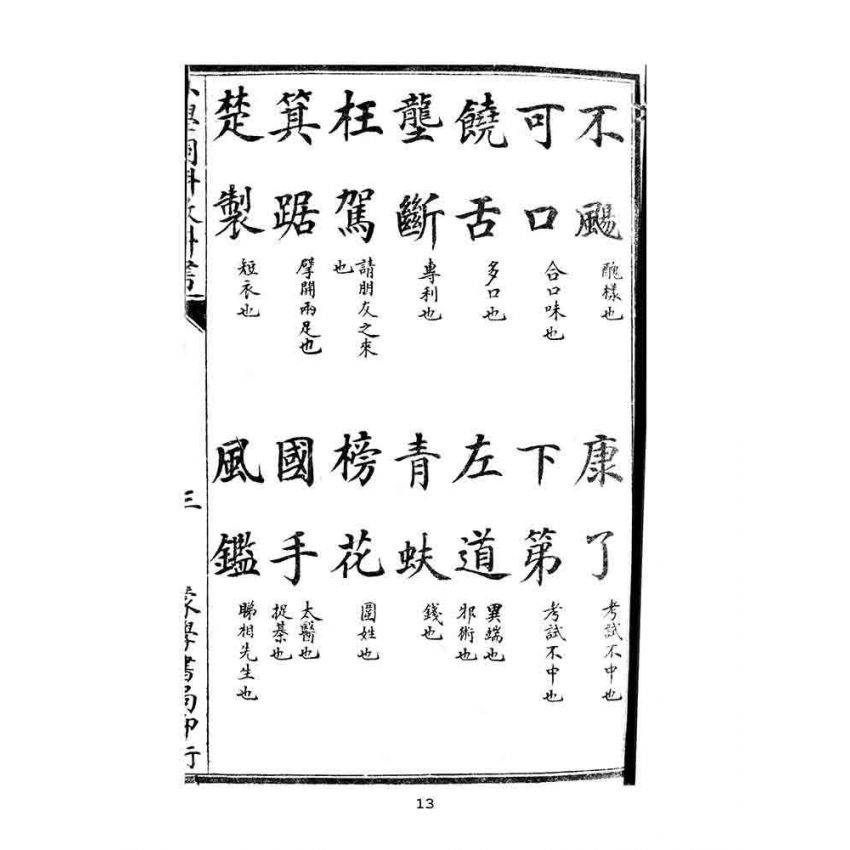 不颺 醜樣也
康了 考試不中也
可口 合口味也
下第 考試不中也
饒舌 多口也
左道 異端也 邪術也
壟斷 專利也
青蚨 錢也
枉駕 請朋友之來也
榜花 圍姓也
箕踞 擘開兩足也
國手 太醫也 捉棊也
楚製 短衣也
風鑑 睇相先生也
三
蒙學書局印行
13